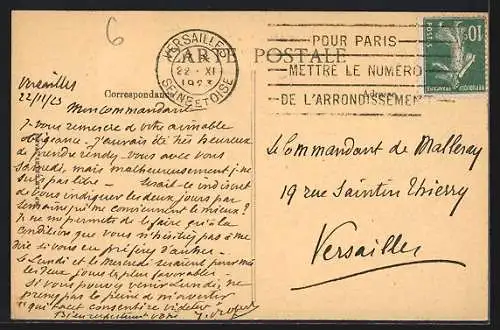 6
CARTE POSTALE
VERSAILLES
22 - XI
1923
SEINE ET OISE
POUR PARIS
METTRE LE NUMÉRO
DE L'ARRONDISSEMENT
10c
POSTES
Correspondance
Adresse
Versailles
22/11/23
Mon Commandant
Je vous remercie de votre aimable
obligeance - J'aurais été très heureux
de prendre rendez-vous avec vous
Samedi, mais malheureusement je ne
suis pas libre - Serait-ce indiscret
de vous indiquer les deux jours par
semaine qui me conviennent le mieux ?
Je ne me permets de le faire qu'à la
condition que vous n'hésitiez pas à me
dire si vous en préférez d'autres -
Le Lundi et le Mercredi seraient pour moi
les deux jours les plus favorables -
Si vous pouvez venir Lundi, ne
prenez pas la peine de m'avertir
Bien respectueusement vôtre
Le Commandant de Malleray
19 rue Saintin Thierry
Versailles